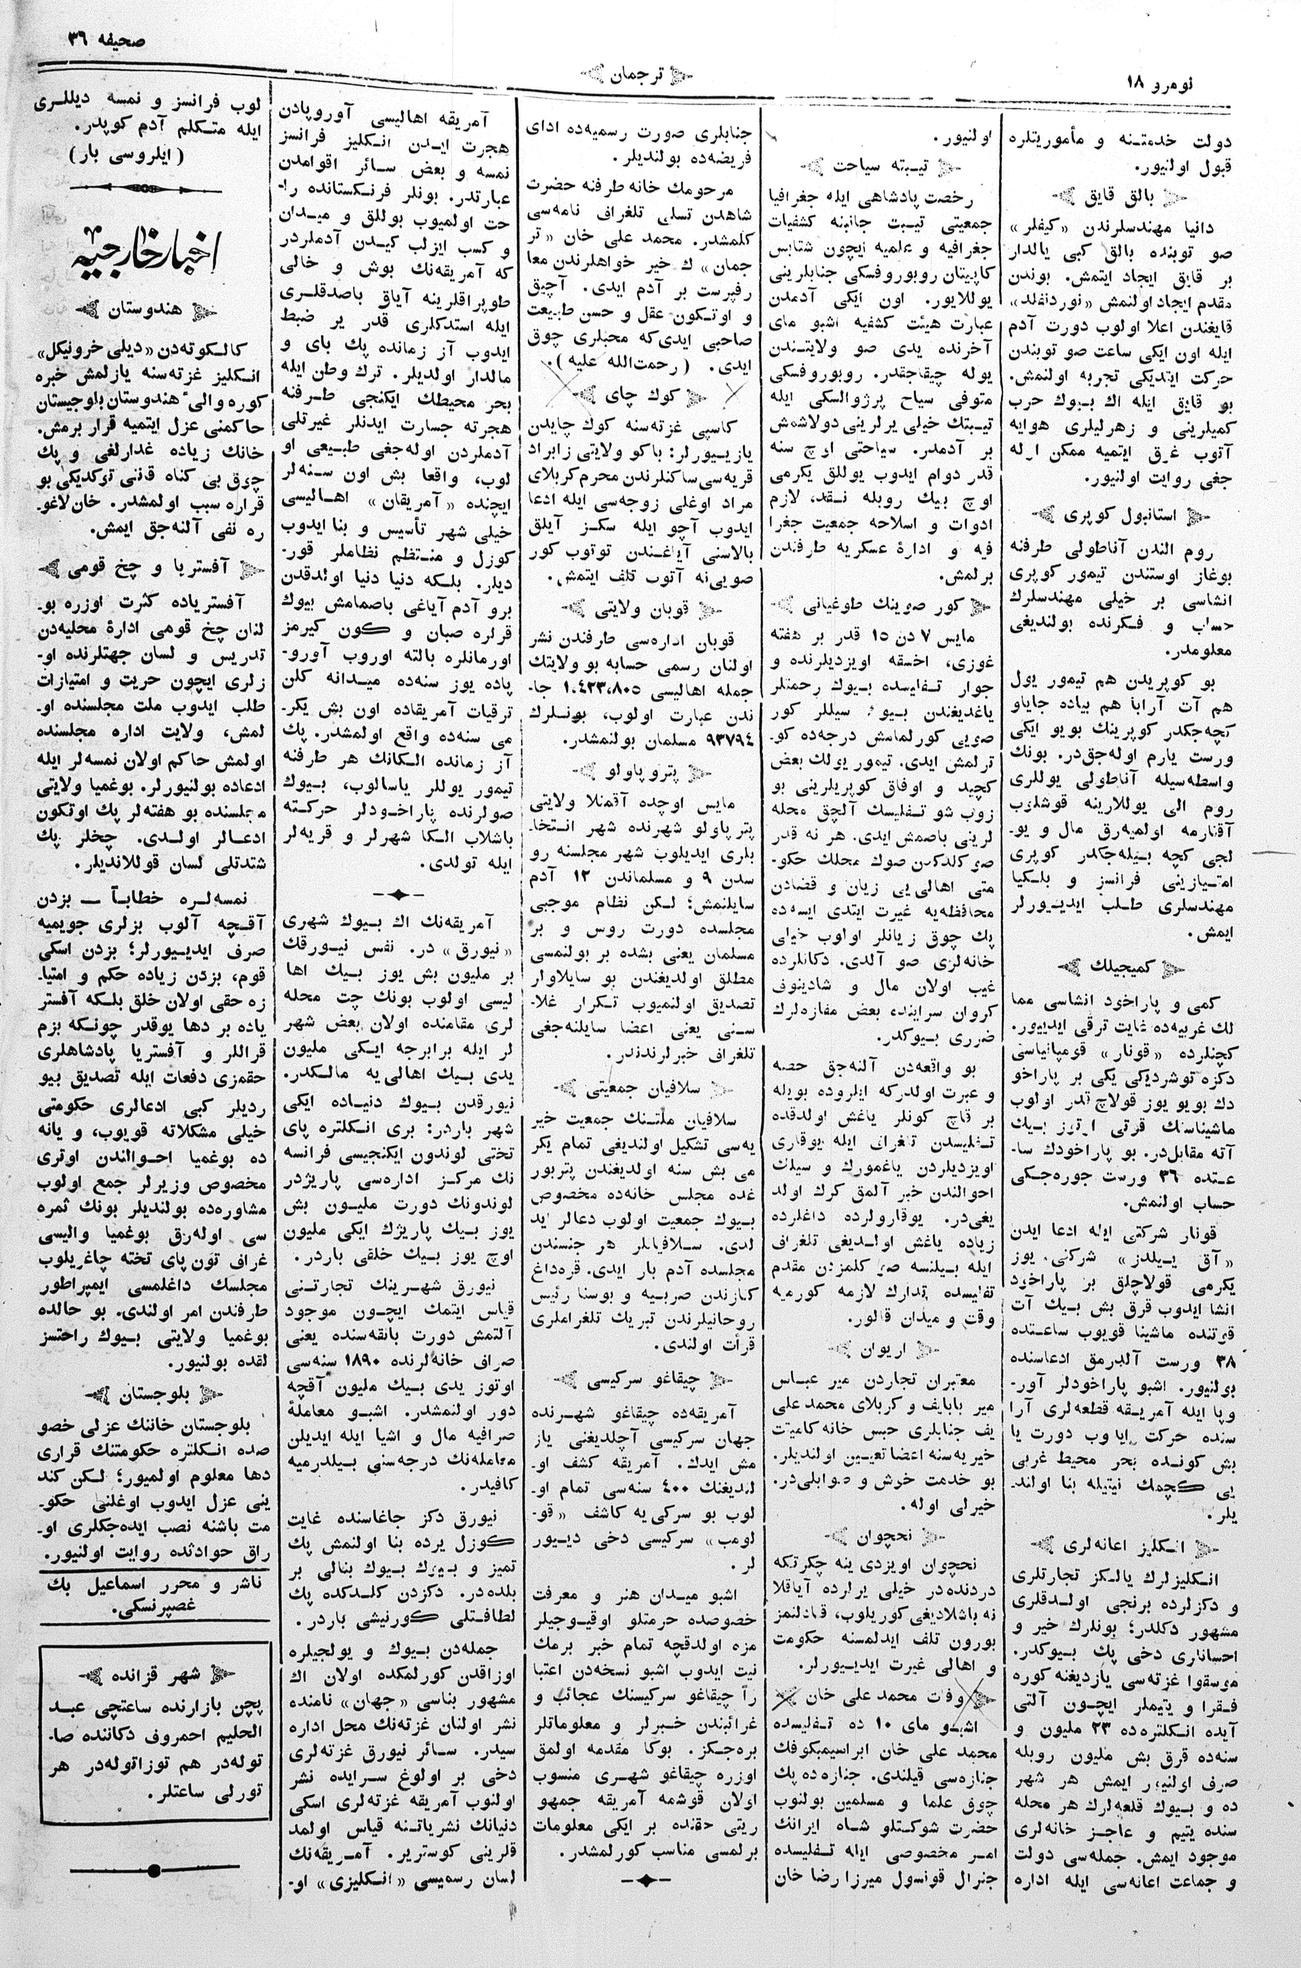 نومرو ١٨
ترجمان
صحيفه ٣٦
دولت خدمتنه و مأموريتلره
قبول اولنيور.
بالق قايق
دانيا مهندسلرندن «كيفلر»
صو توبنده بالق كبى يالدار
بر قايق ايجاد ايتمش. بوندن
مقدم ايجاد اولنمش «نوردنفلد»
قايغندن اعلا اولوب دورت آدم
ايله اون ايكى ساعت صو توبندن
حركت ايتديكى تجربه اولنمش.
بو قايق ايله اك بيوك حرب
كميلرينى و زهرليلرى هوايه
آتوب غرق ايتميه ممكن اوله
جغى روايت اولنيور.
استانبول كوپرى
روم الندن آناطولى طرفنه
بوغاز اوستندن تيمور كوپرى
انشاسى بر خيلى مهندسلرك
حساب و فكرنده بولنديغى
معلومدر.
بو كوپريدن هم تيمور يول
هم آت آرابا هم پياده جاياو
كچه‌جكدر كوپرينك بويو ايكى
ورست يارم اوله‌جق‌در. بونك
واسطه‌سيله آناطولى يوللرى
روم الى يوللارينه قوشلوب
آقتارمه اولميه‌رق مال و يو-
لجى كچه بيله‌جكدر كوپرى
امتيازينى فرانسز و بلكيا
مهندسلرى طلب ايديورلر
ايمش.
كميجيلك
كمى و پاراخود انشاسى مما
لك غربيه‌ده غايت ترقى ايديور.
كچنلرده «قونار» قومپانياسى
دكزه توشرديكى يكى بر پاراخو
دك بويو يوز قولاچ قدر اولوب
ماشيناسنك قوتى اوتوز بيك
آته مقابل‌در. بو پاراخودك سا-
عتده ٣٦ ورست جوره‌جكى
حساب اولنمش.
قونار شركتى ايله ادعا ايدن
«آق ييلدز» شركتى يوز
يكرمى قولاچلق بر پاراخود
انشا ايدوب قرق بش بيك آت
قوتنده ماشينا قويوب ساعتده
٣٨ ورست آلدرمق ادعاسنده
بولنيور. اشبو پاراخودلر آور-
وپا ايله آمريقه قطعه‌لرى آرا
سنده حركت ايدوب دورت يا
بش كونده بحر محيط غربى
يى كچمك نيتيله بنا اولند-
يلر.
انكليز اعانه‌لرى
انكليزلرك يالكز تجارتلرى
و دكزلرده برنجى اولدقلرى
مشهور دكلدر؛ بونلرك خير و
احسانارى دخى پك بيوكدر.
موسقوا غزته‌سى يازديغنه كوره
فقرا و يتيملر ايچون آلتى
آيده انكلتره‌ده ٢٣ مليون و
سنه‌ده قرق بش مليون روبله
صرف اولنيور ايمش هر شهر
ده و بيوك قلعه‌لرك هر محله
سنده يتيم و عاجز خانه‌لرى
موجود ايمش. جمله‌سى دولت
و جماعت اعانه‌سى ايله اداره
اولنيور.
تيبته سياحت
رخصت پادشاهى ايله جغرافيا
جمعيتى تيبت جانبنه كشفيات
جغرافيه و علميه ايچون شتابس
كاپيتان روبوروفسكى جنابلرينى
يوللايور. اون ايكى آدمدن
عبارت هيئت كشفيه اشبو ماى
آخرنده يدى صو ولايتندن
يوله چيقاجقدر. روبوروفسكى
متوفى سياح پرژوالسكى ايله
تيبتك خيلى يرلرينى دولاشمش
بر آدمدر. سياحتى اوچ سنه
قدر دوام ايدوب يوللق يكرمى
اوچ بيك روبله نقد، لازم
ادوات و اسلاحه جمعيت جغرا
فيه و ادارهٔ عسكريه طرفندن
برلمش.
كور صوينك طوغيانى
مايس ٧ دن ١٥ قدر بر هفته
غورى، اخسقه اويزديلرنده و
جوار تفليسده بيوك رحمتلر
ياغديغندن بيوك سيللر كور
صويى كورلمامش درجه‌ده كو-
ترلمش ايدى. تيمور يولك بعض
كچيد و اوفاق كوپريلرينى بو
زوب شو تفليسك آلچق محله
لرينى باصمش ايدى. هر نه قدر
صو كلدكدن صوك محلك حكو-
متى اهالى‌يى زيان و قضادن
محافظه‌يه غيرت ايتدى ايسه‌ده
پك چوق زيانلر اولوب خيلى
خانه‌لرى صو آلدى. دكانلرده
غيب اولان مال و شادينوف
كروان سراينده بعض مغازه‌لرك
ضررى بيوكدر.
بو واقعه‌دن آلنه‌جق حصه
و عبرت اولدركه ايلروده بويله
بر قاچ كونلر ياغش اولدقده
تفليسدن تلغراف ايله يوقارى
اويزديلردن ياغمورك و سيلك
احوالندن خبر آلمق كرك اولد
يغى‌در. يوقارولرده داغلرده
زياده ياغش اولديغى تلغراف
ايله بيلنسه صو كلمزدن مقدم
تفليسده تدارك لازمه كورميه
وقت و ميدان قالور.
اريوان
معتبران تجاردن مير عباس
مير بابايف و كربلاى محمد على
يف جنابلرى حبس خانه كاميتت
خيريه‌سنه اعضا تعيين اولنديلر.
بو خدمت خوش و صوابلى‌در.
خيرلى اوله.
نحچوان
نحچوان اويزدى ينه چكرتكه
دردنده‌در خيلى يرلرده آياقلا
نه باشلاديغى كوريلوب، قنادلنمز
بورون تلف ايدلمسنه حكومت
و اهالى غيرت ايديورلر.
وفات محمد على خان
اشبو ماى ١٠ ده تفليسده
محمد على خان ابراسيمبكوفك
جنازه‌سى قيلندى. جنازه‌ده پك
چوق علما و مسلمين بولنوب
حضرت شوكتلو شاه ايرانك
امر مخصوصى ايله تفليسده
جنرال قونسول ميرزا رضا خان
جنابلرى صورت رسميه‌ده اداى
فريضه‌ده بولنديلر.
مرحومك خانه طرفنه حضرت
شاهدن تسلى تلغراف نامه‌سى
كلمشدر. محمد على خان «تر
جمان» ك خير خواهلرندن معا
رفپرست بر آدم ايدى. آچيق
و اوتكون عقل و حسن طبيعت
صاحبى ايدى‌كه محبلرى چوق
ايدى. (رحمت‌الله عليه).
كوك چاى
كاسپى غزته‌سنه كوك چايدن
يازييورلر: باكو ولايتى زابراد
قريه‌سى ساكنلرندن محرم كربلاى
مراد اوغلى زوجه‌سى ايله ادعا
ايدوب آچو ايله سكز آيلق
بالاسنى آياغندن توتوب كور
صويى‌نه آتوب تلف ايتمش.
قوبان ولايتى
قوبان اداره‌سى طارفندن نشر
اولنان رسمى حسابه بو ولايتك
جمله اهاليسى ١،٤٢٣،٨٠٥ جا-
ندن عبارت اولوب، بونلرك
٩٣٧٩٤ مسلمان بولنمشدر.
پترو پاولو
مايس اوچده آقمنلا ولايتى
پتر پاولو شهرنده شهر انتخا-
بلرى ايديلوب شهر مجلسنه رو
سدن ٩ و مسلماندن ١٢ آدم
سايلنمش؛ لكن نظام موجبى
مجلسده دورت روس و بر
مسلمان يعنى بشده بر بولنمسى
مطلق اولديغندن بو سايلاولر
تصديق اولنميوب تكرار غلا-
سنى يعنى اعضا سايلنه‌جغى
تلغراف خبرلرندندر.
سلافيان جمعيتى
سلافيان ملتنك جمعيت خير
يه‌سى تشكيل اولنديغى تمام يكر
مى بش سنه اولديغندن پتربور
غده مجلس خانه‌ده مخصوص
بيوك جمعيت اولوب دعالر ايد
لدى. سلافيانلر هر جنسندن
مجلسده آدم بار ايدى. قره‌داغ
كنازندن صربيه و بوسنا رئيس
روحانيلرندن تبريك تلغراملرى
قرأت اولندى.
چيقاغو سركيسى
آمريقه‌ده چيقاغو شهرنده
جهان سركيسى آچلديغنى ياز
مش ايدك. آمريقه كشف او-
لنديغنك ٤٠٠ سنه‌سى تمام او-
لوب بو سركى‌يه كاشف «قو-
لومب» سركيسى دخى دييور
لر.
اشبو ميدان هنر و معرفت
خصوصده حرمتلو اوقيوجيلر
مزه اولدقچه تمام خبر برمك
نيت ايدوب اشبو نسخه‌دن اعتبا
راً چيقاغو سركيسنك عجائب و
غرائبندن خبرلر و معلوماتلر
بره‌جكز. بوكا مقدمه اولمق
اوزره چيقاغو شهرى منسوب
اولان قوشمه آمريقه جمهو
ريتى حقنده بر ايكى معلومات
برلمسى مناسب كورلمشدر.
آمريقه اهاليسى آوروپادن
هجرت ايدن انكليز فرانسز
نمسه و بعض سائر اقوامدن
عبارتدر. بونلر فرنكستانده را-
حت اولميوب بوللق و ميدان
و كسب ايزلب كيدن آدملردر
كه آمريقه‌نك بوش و خالى
طوپراقلرينه آياق باصدقلرى
ايله استدكلرى قدر ير ضبط
ايدوب آز زمانده پك باى و
مالدار اولديلر. ترك وطن ايله
بحر محيطك ايكنجى طرفنه
هجرته جسارت ايدنلر غيرتلى
آدملردن اوله‌جغى طبيعى او
لوب، واقعا بش اون سنه‌لر
ايچنده «آمريقان» اهاليسى
خيلى شهر تأسيس و بنا ايدوب
كوزل و منتظم نظاملر قور-
ديلر. بلكه دنيا دنيا اولدقدن
برو آدم آياغى باصمامش بيوك
قرلره صبان و كون كيرمز
اورمانلره بالته اوروب آورو-
پاده يوز سنه‌ده ميدانه كلن
ترقيات آمريقاده اون بش يكر-
مى سنه‌ده واقع اولمشدر. پك
آز زمانده الكانك هر طرفنه
تيمور يوللر ياسالوب، بيوك
صولرنده پاراخودلر حركته
باشلاب الكا شهرلر و قريه‌لر
ايله تولدى.
آمريقه‌نك اك بيوك شهرى
«نيورق» در. نفس نيورقك
بر مليون بش يوز بيك اها
ليسى اولوب بونك چت محله
لرى مقامنده اولان بعض شهر
لر ايله برابرجه ايكى مليون
يدى بيك اهالى‌يه مالكدر.
نيورقدن بيوك دنياده ايكى
شهر باردر: برى انكلتره پاى
تختى لوندون ايكنجيسى فرانسه
نك مركز اداره‌سى پاريژدر
لوندونك دورت مليون بش
يوز بيك پاريژك ايكى مليون
اوچ يوز بيك خلقى باردر.
نيورق شهرينك تجارتنى
قياس ايتمك ايچون موجود
آلتمش دورت بانقه‌سنده يعنى
صراف خانه‌لرنده ١٨٩٠ سنه‌سى
اوتوز يدى بيك مليون آقچه
دور اولنمشدر. اشبو معاملهٔ
صرافيه مال و اشيا ايله ايديلن
معامله‌نك درجه‌سنى بيلدرميه
كافيدر.
نيورق دكز جاغاسنده غايت
كوزل يرده بنا اولنمش پك
تميز و بيوك بيوك بنالى بر
بلده‌در. دكزدن كلدكده پك
لطافتلى كورنيشى باردر.
جمله‌دن بيوك و يولجيلره
اوزاقدن كورلمكده اولان اك
مشهور بناسى «جهان» نامنده
نشر اولنان غزته‌نك محل اداره
سيدر. سائر نيورق غزته‌لرى
دخى بر اولوغ سرايده نشر
اولنوب آمريقه غزته‌لرى اسكى
دنيانك نشرياتنه قياس اولمد
قلرينى كوستريير. آمريقه‌نك
لسان رسميسى «انكليزى» او-
لوب فرانسز و نمسه ديللرى
ايله متكلم آدم كوپدر.
(ايلروسى بار)
اخبار خارجيه
هندوستان
كالكوته‌دن «ديلى خرونيكل»
انكليز غزته‌سنه يازلمش خبره
كوره والى هندوستان بلوجيستان
حاكمنى عزل ايتميه قرار برمش.
خانك زياده غدارلغى و پك
چوق بى كناه قانى توكديكى بو
قراره سبب اولمشدر. خان‌لاغو-
ره نفى آلنه‌جق ايمش.
آفستريا و چخ قومى
آفسترياده كثرت اوزره بو-
لنان چخ قومى ادارهٔ محليه‌دن
تدريس و لسان جهتلرنده او-
زلرى ايچون حريت و امتيازات
طلب ايدوب ملت مجلسنده او-
لمش، ولايت اداره مجلسنده
اولمش حاكم اولان نمسه‌لر ايله
ادعاده بولنيورلر. بوغميا ولايتى
مجلسنده بو هفته‌لر پك اوتكون
ادعالر اولدى. چخلر پك
شدتلى لسان قوللانديلر.
نمسه‌لره خطاباً — بزدن
آقچه آلوب بزلرى جويميه
صرف ايديورلر؛ بزدن اسكى
قوم، بزدن زياده حكم و امتيا-
زه حقى اولان خلق بلكه آفستر
ياده بر دها يوقدر چونكه بزم
قراللر و آفستريا پادشاهلرى
حقمزى دفعات ايله تصديق بيو
رديلر كبى ادعالرى حكومتى
خيلى مشكلاته قويوب، ويانه
ده بوغميا احوالندن اوترى
مخصوص وزيرلر جمع اولوب
مشاوره‌ده بولنديلر بونك ثمره
سى اوله‌رق بوغميا واليسى
غراف تون پاى تخته چاغريلوب
مجلسك داغلمسى ايمپراطور
طرفندن امر اولندى. بو حالده
بوغميا ولايتى بيوك راحتسز
لقده بولنيور.
بلوجستان
بلوجستان خاننك عزلى خصو
صده انكلتره حكومتنك قرارى
دها معلوم اولميور؛ لكن كند
ينى عزل ايدوب اوغلنى حكو-
مت باشنه نصب ايده‌جكلرى او-
راق حوادثده روايت اولنيور.
ناشر و محرر اسماعيل بك
غصپرنسكى.
شهر قزانده
پچن بازارنده ساعتچى عبد
الحليم احمروف دكاننده صا-
توله‌در هم توزاتوله‌در هر
تورلى ساعتلر.